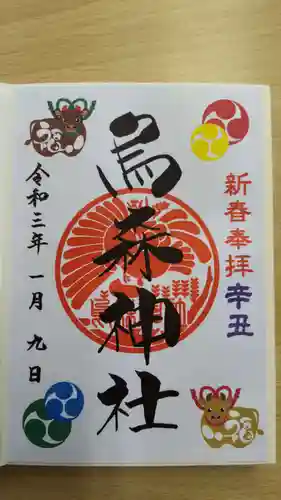 新春奉拝 辛丑
烏森神社
令和三年 一月 九日